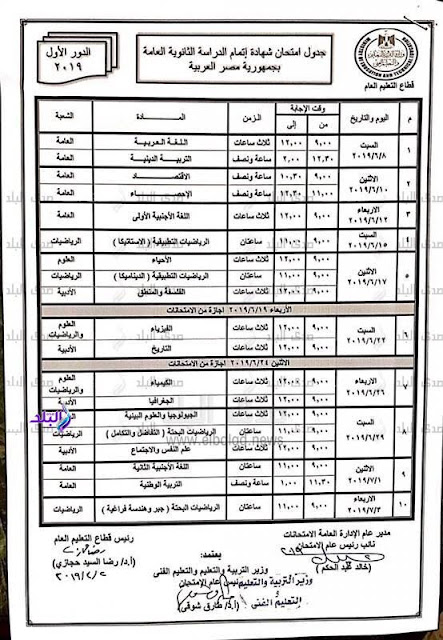 جدول امتحان شهادة إتمام الدراسة الثانوية العامة
بجمهورية مصر العربية
الدور الأول
٢٠١٩
قطاع التعليم العام
م اليوم والتاريخ وقت الإجابة الزمن المادة الشعبة
من إلى
١ السبت ٢٠١٩/٦/٨ ٩،٠٠ ١٢،٠٠ ثلاث ساعات اللغة العربية العامة
١٢،٣٠ ٢،٠٠ ساعة ونصف التربية الدينية العامة
٢ الاثنين ٢٠١٩/٦/١٠ ٩،٠٠ ١٠،٣٠ ساعة ونصف الاقتصاد العامة
١١،٠٠ ١٢،٣٠ ساعة ونصف الإحصاء العامة
٣ الاربعاء ٢٠١٩/٦/١٢ ٩،٠٠ ١٢،٠٠ ثلاث ساعات اللغة الأجنبية الأولى العامة
٤ السبت ٢٠١٩/٦/١٥ ٩،٠٠ ١١،٠٠ ساعتان الرياضيات التطبيقية ( الإستاتيكا ) الرياضيات
٥ الاثنين ٢٠١٩/٦/١٧ ٩،٠٠ ١٢،٠٠ ثلاث ساعات الأحياء العلوم
٩،٠٠ ١١،٠٠ ساعتان الرياضيات التطبيقية ( الديناميكا ) الرياضيات
٩،٠٠ ١٢،٠٠ ثلاث ساعات الفلسفة والمنطق الأدبية
الأربعاء ٢٠١٩/٦/١٩ اجازة من الامتحانات
٦ السبت ٢٠١٩/٦/٢٢ ٩،٠٠ ١٢،٠٠ ثلاث ساعات الفيزياء العلوم والرياضيات
٩،٠٠ ١٢،٠٠ ثلاث ساعات التاريخ الأدبية
الاثنين ٢٠١٩/٦/٢٤ اجازة من الامتحانات
الاربعاء ٢٠١٩/٦/٢٦ ٩،٠٠ ١٢،٠٠ ثلاث ساعات الكيمياء العلوم والرياضيات
٩،٠٠ ١٢،٠٠ ثلاث ساعات الجغرافيا الأدبية
٨ السبت ٢٠١٩/٦/٢٩ ٩،٠٠ ١٢،٠٠ ثلاث ساعات الجيولوجيا والعلوم البيئية
٩،٠٠ ١١،٠٠ ساعتان الرياضيات البحتة ( التفاضل والتكامل ) الرياضيات
٩،٠٠ ١٢،٠٠ ثلاث ساعات علم النفس والاجتماع الأدبية
٩ الاثنين ٢٠١٩/٧/١ ٩،٠٠ ١١،٠٠ ساعتان اللغة الأجنبية الثانية العامة
١١،٣٠ ١،٠٠ ساعة ونصف التربية الوطنية العامة
١٠ الاربعاء ٢٠١٩/٧/٣ ٩،٠٠ ١١،٠٠ ساعتان الرياضيات البحتة ( جبر وهندسة فراغية ) الرياضيات
البلد
صدى البلد
www.elbalad.news
مدير عام الإدارة العامة الامتحانات
نائب رئيس عام الإمتحان
(خالد عبد الحكم )
رئيس قطاع التعليم العام
(أ.د/ رضا السيد حجازي )
يعتمد:
وزير التربية والتعليم والتعليم الفنى
رئيس عام الإمتحان
وزير التربية والتعليم
والتعليم الفنى
(أ.د/ طارق شوقى )